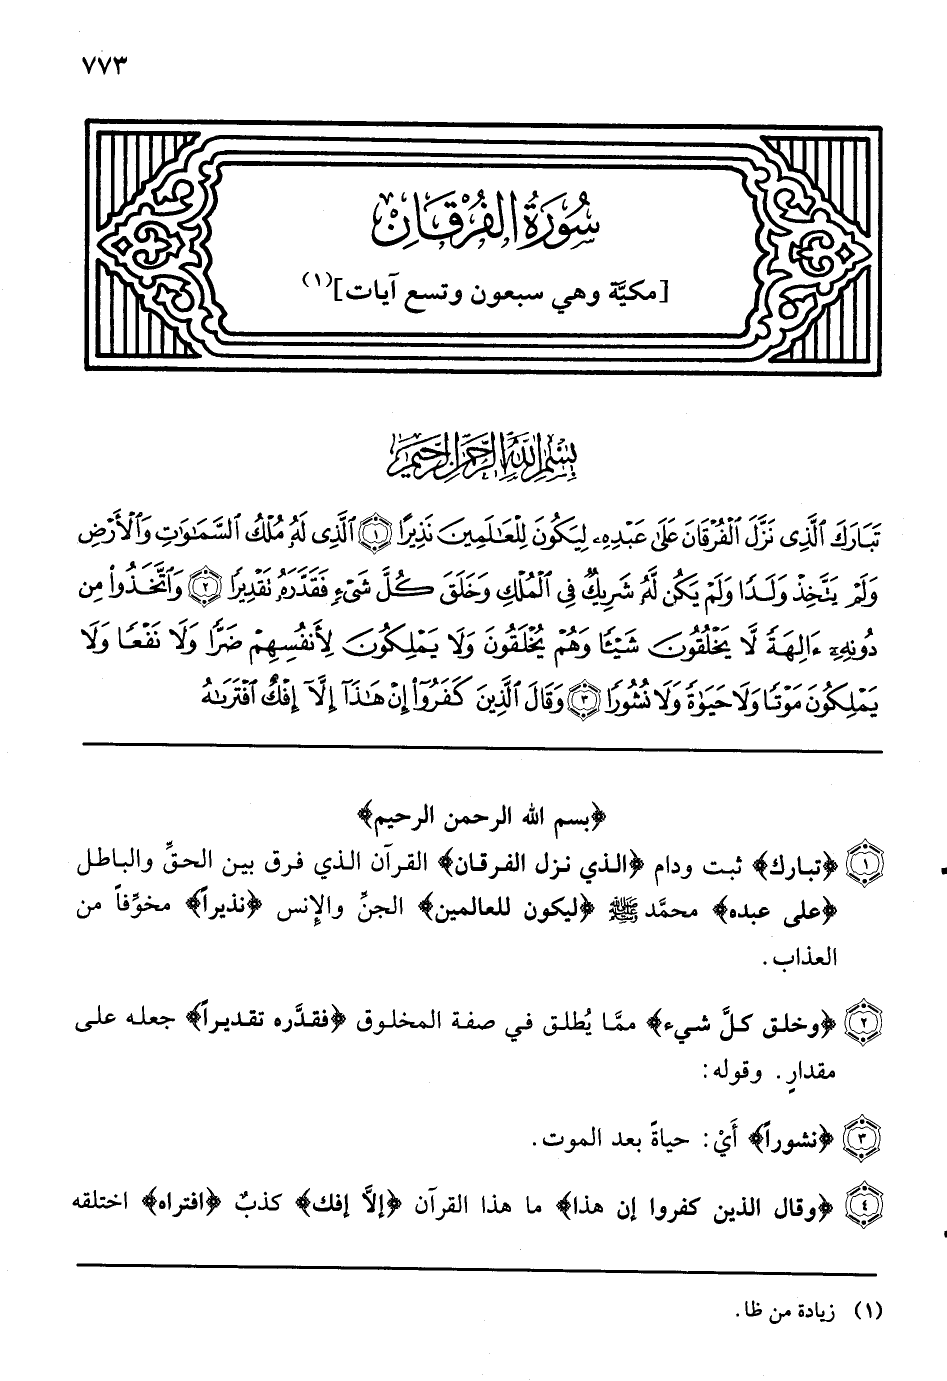 ٧٧٣
سُورَةُ الفُرْقَانِ
[مكيَّة وهي سبعون وتسع آيات](١)
بِسْمِ اللَّهِ الرَّحْمَٰنِ الرَّحِيمِ
تَبَارَكَ ٱلَّذِى نَزَّلَ ٱلْفُرْقَانَ عَلَىٰ عَبْدِهِۦ لِيَكُونَ لِلْعَٰلَمِينَ نَذِيرًا ١ ٱلَّذِى لَهُۥ مُلْكُ ٱلسَّمَٰوَٰتِ وَٱلْأَرْضِ
وَلَمْ يَتَّخِذْ وَلَدًا وَلَمْ يَكُن لَّهُۥ شَرِيكٌ فِى ٱلْمُلْكِ وَخَلَقَ كُلَّ شَىْءٍ فَقَدَّرَهُۥ تَقْدِيرًا ٢ وَٱتَّخَذُوا۟ مِن
دُونِهِۦٓ ءَالِهَةً لَّا يَخْلُقُونَ شَيْـًٔا وَهُمْ يُخْلَقُونَ وَلَا يَمْلِكُونَ لِأَنفُسِهِمْ ضَرًّا وَلَا نَفْعًا وَلَا
يَمْلِكُونَ مَوْتًا وَلَا حَيَوٰةً وَلَا نُشُورًا ٣ وَقَالَ ٱلَّذِينَ كَفَرُوٓا۟ إِنْ هَٰذَآ إِلَّآ إِفْكٌ ٱفْتَرَىٰهُ
﴿بسم الله الرحمن الرحيم﴾
١ ﴿تبارك﴾ ثبت ودام ﴿الذي نزل الفرقان﴾ القرآن الذي فرق بين الحقِّ والباطل
﴿على عبده﴾ محمَّد ﷺ ﴿ليكون للعالمين﴾ الجنِّ والإنس ﴿نذيراً﴾ مخوِّفاً من
العذاب.
٢ ﴿وخلق كلَّ شيء﴾ ممَّا يُطلق في صفة المخلوق ﴿فقدَّره تقديراً﴾ جعله على
مقدارٍ. وقوله:
٣ ﴿نشوراً﴾ أَيْ: حياةً بعد الموت.
٤ ﴿وقال الذين كفروا إن هذا﴾ ما هذا القرآن ﴿إلَّا إفك﴾ كذبٌ ﴿افتراه﴾ اختلقه
(١) زيادة من ظا.